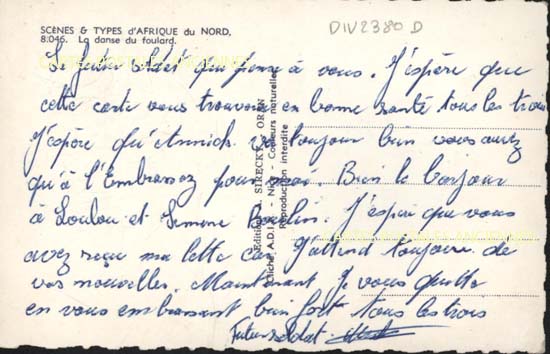 SCÈNES & TYPES d'AFRIQUE du NORD.
8.046. La danse du foulard.
DIV2380 D
Le futur soldat qui pense à vous. J'espère que
cette carte vous trouvera en bonne santé tous les trois
J'espère qu'Annick va toujour bien vous aurez
qu'à l'Embrassez pour moi. Bien le bonjour
à Loulou et Simone. J'espère que vous
avez reçu ma lettre car J'attend toujours de
vos nouvelles. Maintenant Je vous quitte
en vous embrassant bien fort tous les trois
Futur soldat.
Edition SIRECKY - ORAN
Cliché A.D.I.A. - Nice - Couleurs naturelles
Reproduction interdite